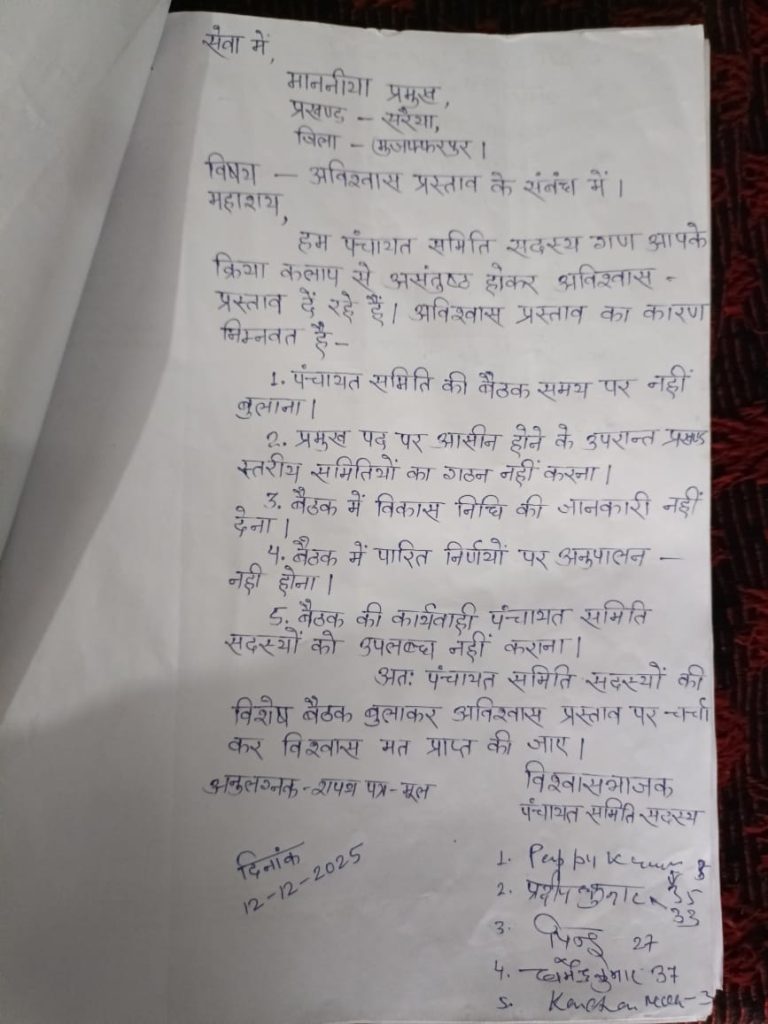 सेवा में,
माननीया प्रमुख,
प्रखण्ड - सरैया,
जिला - मुजफ्फरपुर।
विषय - अविश्वास प्रस्ताव के संबंध में।
महाशय,
हम पंचायत समिति सदस्य गण आपके
क्रिया कलाप से असंतुष्ठ होकर अविश्वास -
प्रस्ताव दें रहे हैं। अविश्वास प्रस्ताव का कारण
निम्नवत है -
1. पंचायत समिति की बैठक समय पर नहीं
बुलाना।
2. प्रमुख पद पर आसीन होने के उपरान्त प्रखण्ड
स्तरीय समितियों का गठन नहीं करना।
3. बैठक में विकास निधि की जानकारी नहीं
देना।
4. बैठक में पारित निर्णयों पर अनुपालन -
नही होना।
5. बैठक की कार्यवाही पंचायत समिति
सदस्यों को उपलब्ध नहीं कराना।
अतः पंचायत समिति सदस्यों की
विशेष बैठक बुलाकर अविश्वास प्रस्ताव पर चर्चा
कर विश्वास मत प्राप्त की जाए।
अनुलग्नक - शपथ पत्र - मूल
विश्वासभाजक
पंचायत समिति सदस्य
दिनांक
12-12-2025
1.
2. प्रदीप कुमार 35
33
3. पिन्टु 27
4. धर्मेन्द्र कुमार 37
5. Kanchan